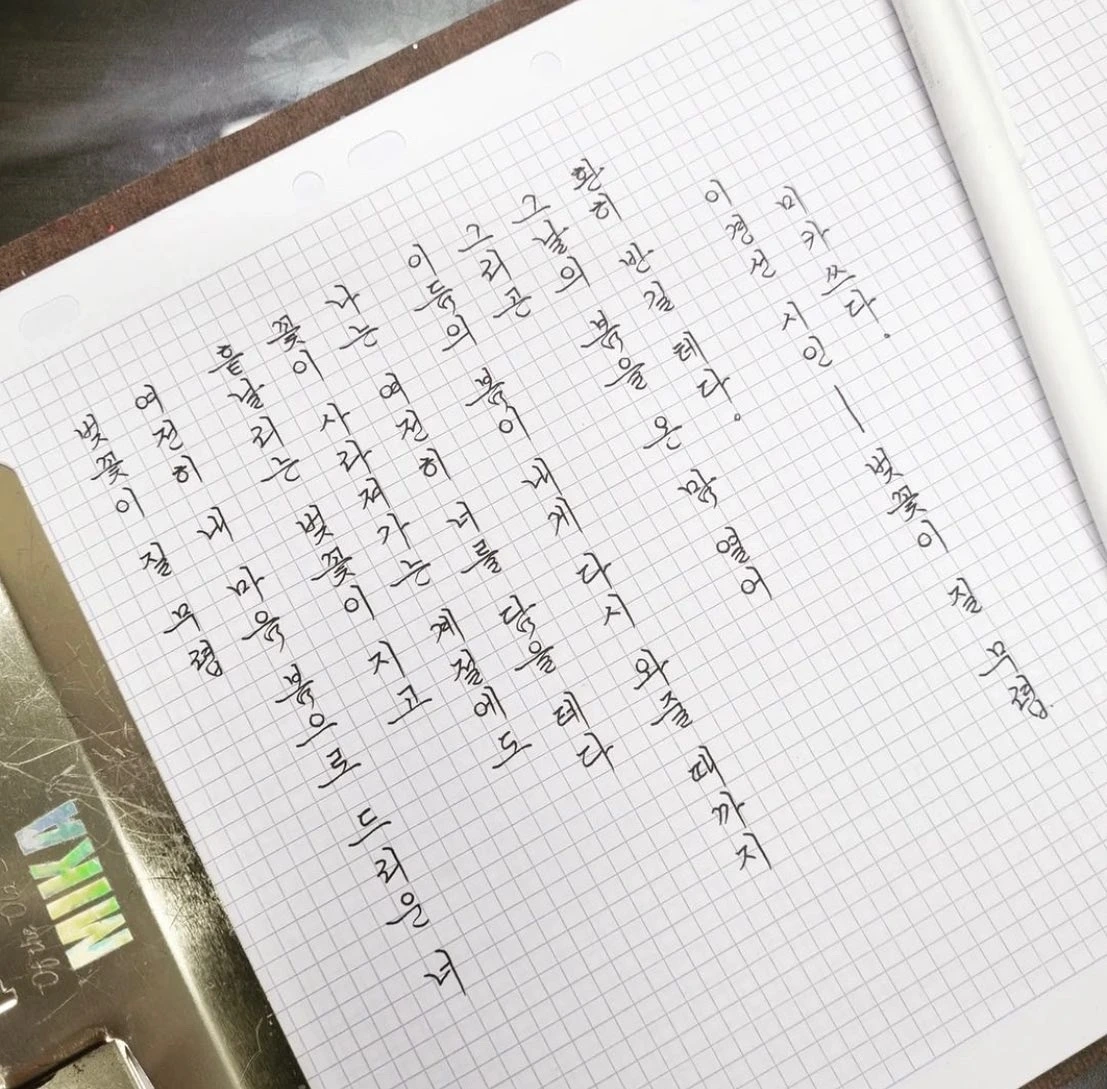 벚꽃이 질 무렵
여전히 내 마음 봄으로 드리운 너
흩날리는 벚꽃이 지고
꽃이 사라져가는 계절에도
나는 여전히 너를 담을 테다
이듬의 봄이 내게 다시 와줄 때까지
그리곤
그날의 봄을 온 맘 열어
환히 반길 테다.
이경선 시인 — 벚꽃이 질 무렵.
미카 쓰다.
MIKA